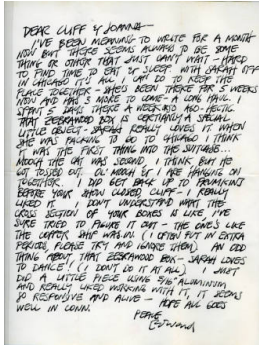 DEAR CLIFF & JOANNE—
I'VE BEEN MEANING TO WRITE FOR A MONTH
NOW BUT THERE SEEMS ALWAYS TO BE SOME
THING OR OTHER THAT JUST CAN'T WAIT – HARD
TO FIND TIME TO EAT OR SLEEP WITH SARAH OFF
IN CHICAGO IT'S ALL I CAN DO TO KEEP THE
PLACE TOGETHER – SHE'S BEEN THERE FOR 5 WEEKS
NOW AND HAS 5 MORE TO COME – A LONG HAUL. I
SPENT 5 DAYS THERE A WEEK AGO – HECTIC.
THAT ZEBRAWOOD BOX IS CERTIANLY A SPECIAL
LITTLE OBJECT – SARAH REALLY LOVES IT WHEN
SHE WAS PACKING TO GO TO CHICAGO I THINK
IT WAS THE FIRST THING INTO THE SUITCASE...
MOOCH THE CAT WAS SECOND, I THINK, BUT HE
GOT TOSSED OUT. OL' MOOCH & I ARE HANGING ON
TOGETHER. I DID GET BACK UP TO
BEFORE YOUR SHOW CLOSED CLIFF – I REALLY
LIKED IT. I DON'T UNDERSTAND WHAT THE
CROSS SECTION OF YOUR BOXES IS LIKE, I'VE
SURE TRIED TO FIGURE IT OUT – THE ONE'S LIKE
THE COPPER SHIP WAS IN. (I OFTEN PUT IN EXTRA
PERIODS, PLEASE TRY AND IGNORE THEM) AN ODD
THING ABOUT THAT ZEBRAWOOD BOX – SARAH LOVES
TO DANCE! (I DON'T DO IT AT ALL) I JUST
DID A LITTLE PIECE USING 3/16" ALUMINUM
AND REALLY LIKED WORKING WITH IT, IT SEEMS
SO RESPONSIVE AND ALIVE – HOPE ALL GOES
WELL IN CONN.
PEACE